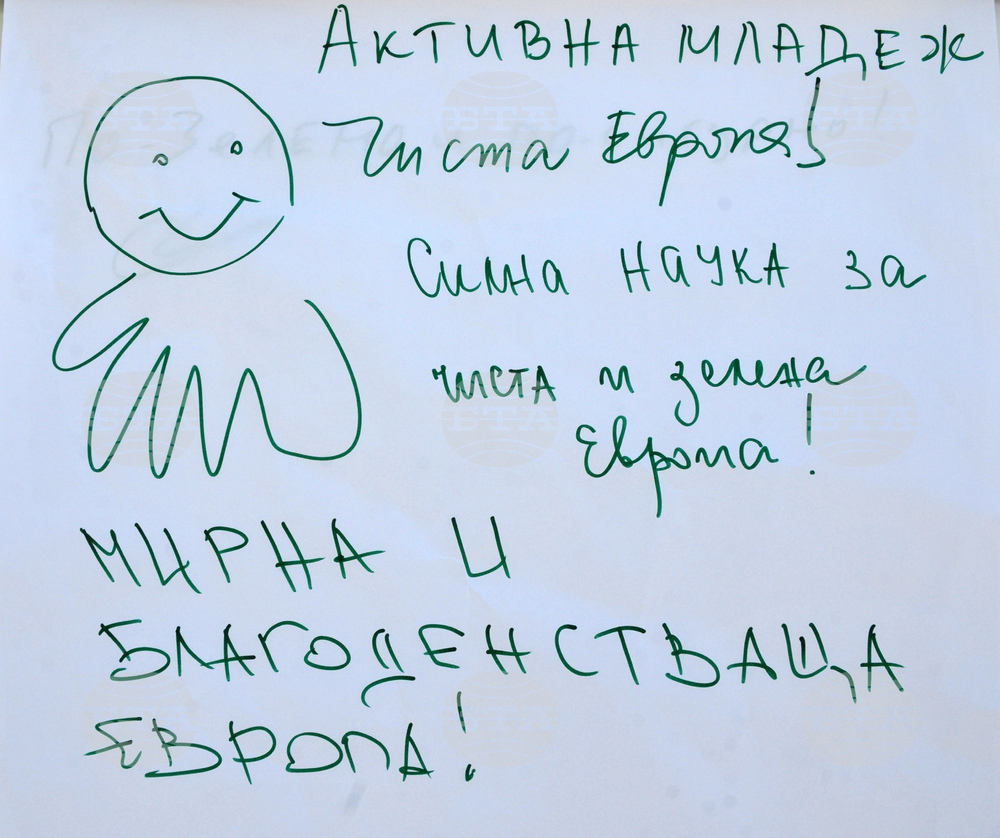 АКТИВНА МЛАДЕЖ
Чиста Европа!
Силна НАУКА за
чиста и зелена
Европа!
МИРНА И
БЛАГОДЕНСТВАЩА
ЕВРОПА!